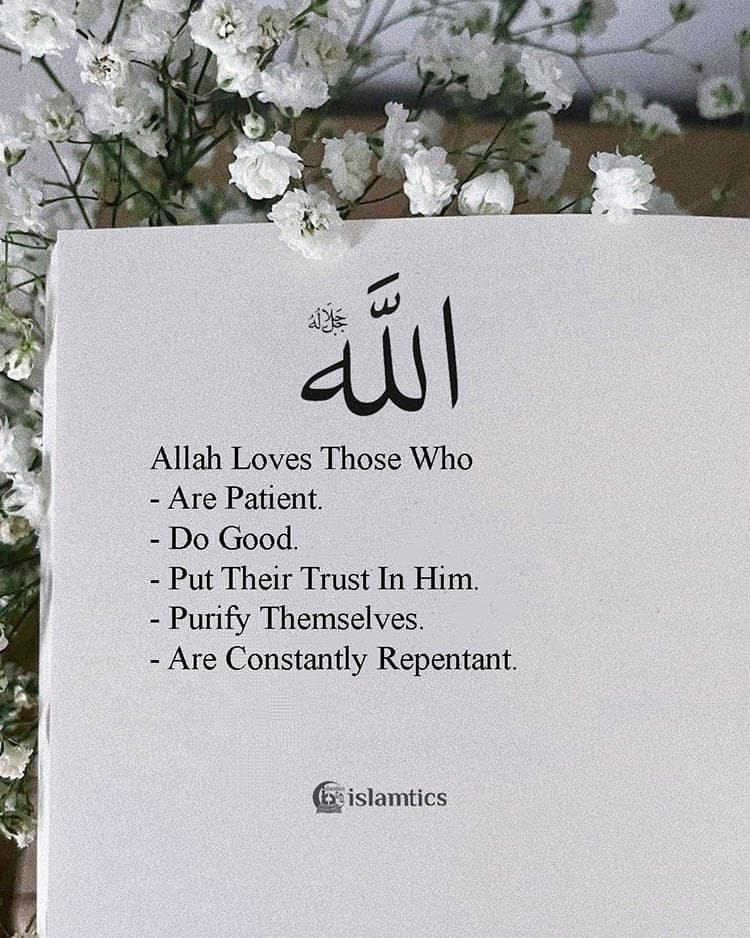 الله
جَلَّ جَلَالُهُ
Allah Loves Those Who
- Are Patient.
- Do Good.
- Put Their Trust In Him.
- Purify Themselves.
- Are Constantly Repentant.
islamtics